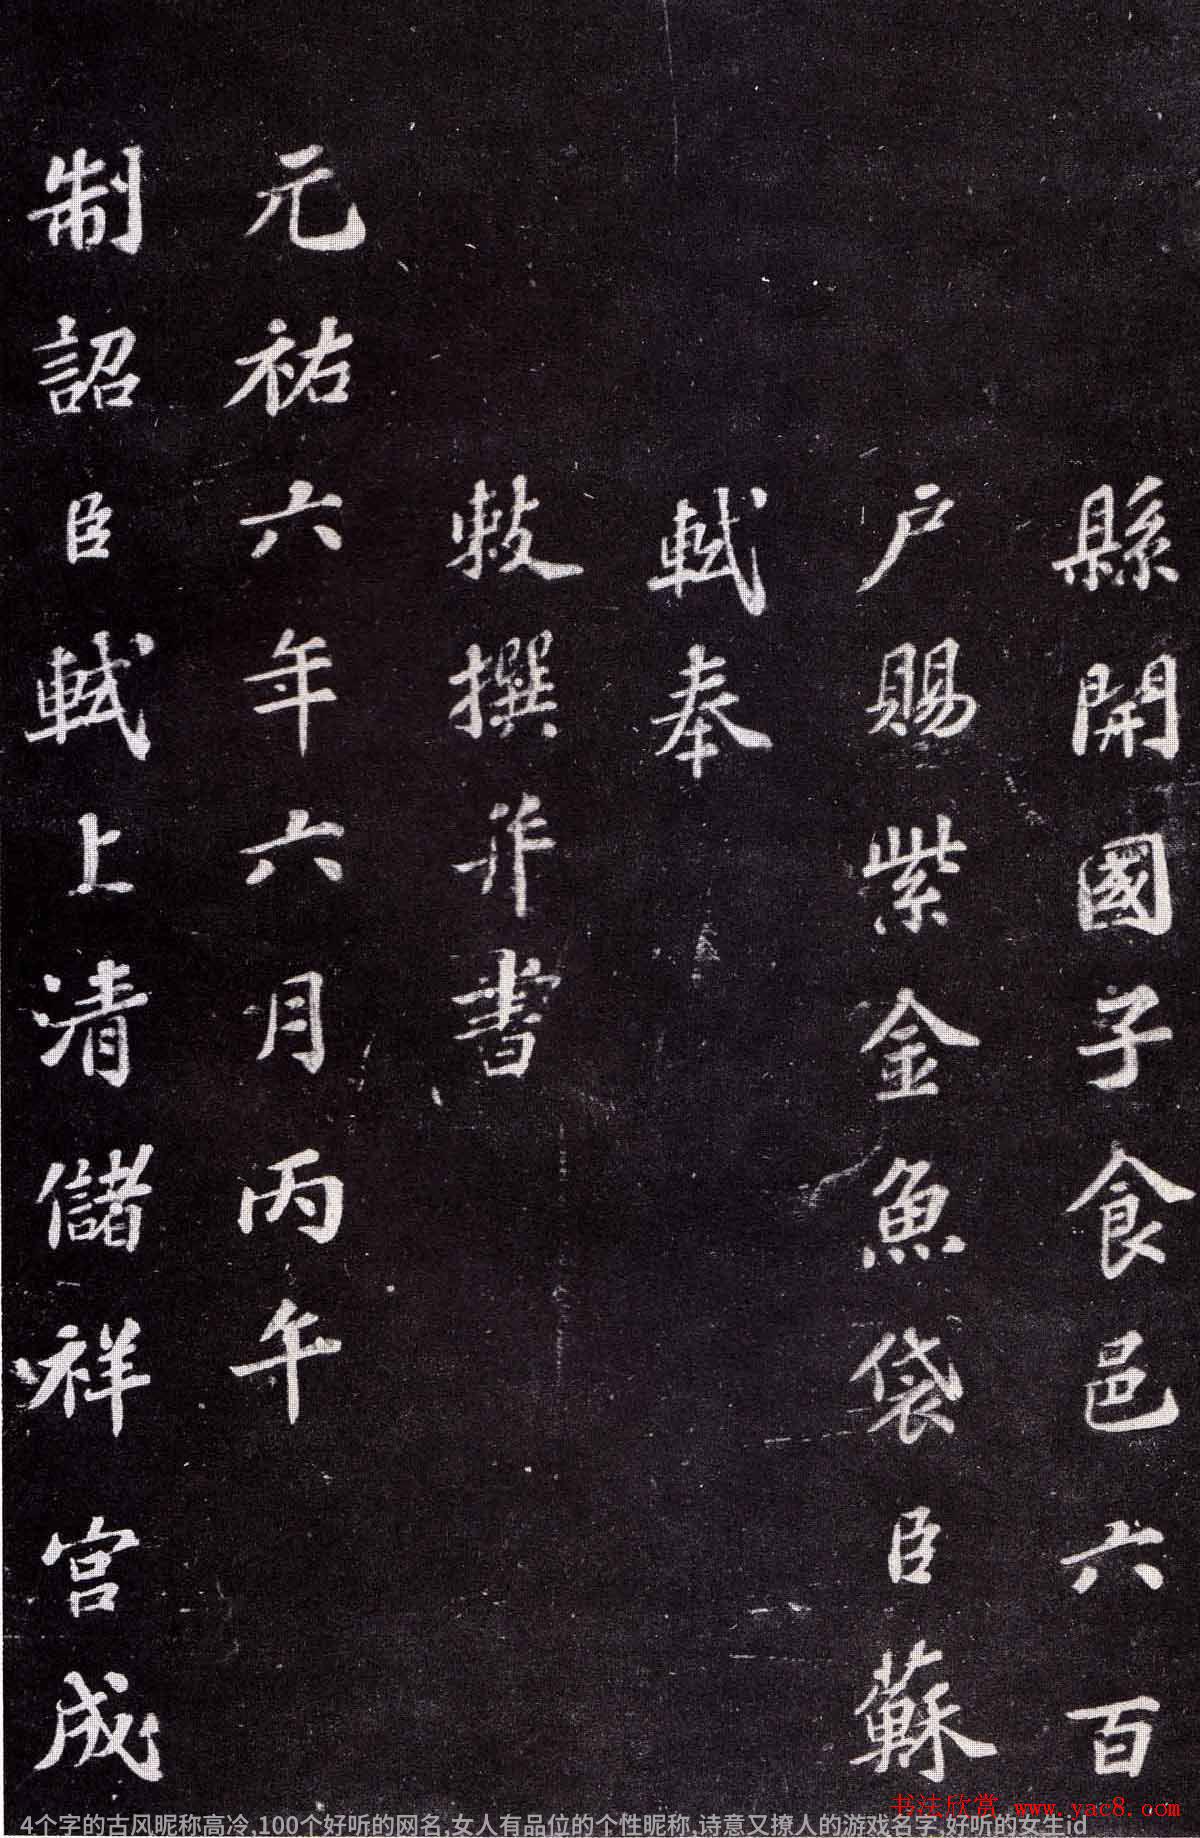 縣開國子食邑六百
户賜紫金魚袋臣蘇
軾奉
敕撰并書
元祐六年六月丙午
制詔臣軾上清儲祥宮成
书法欣赏 www.yac8.com
4个字的古风昵称高冷,100个好听的网名,女人有品位的个性昵称,诗意又撩人的游戏名字,好听的女生id